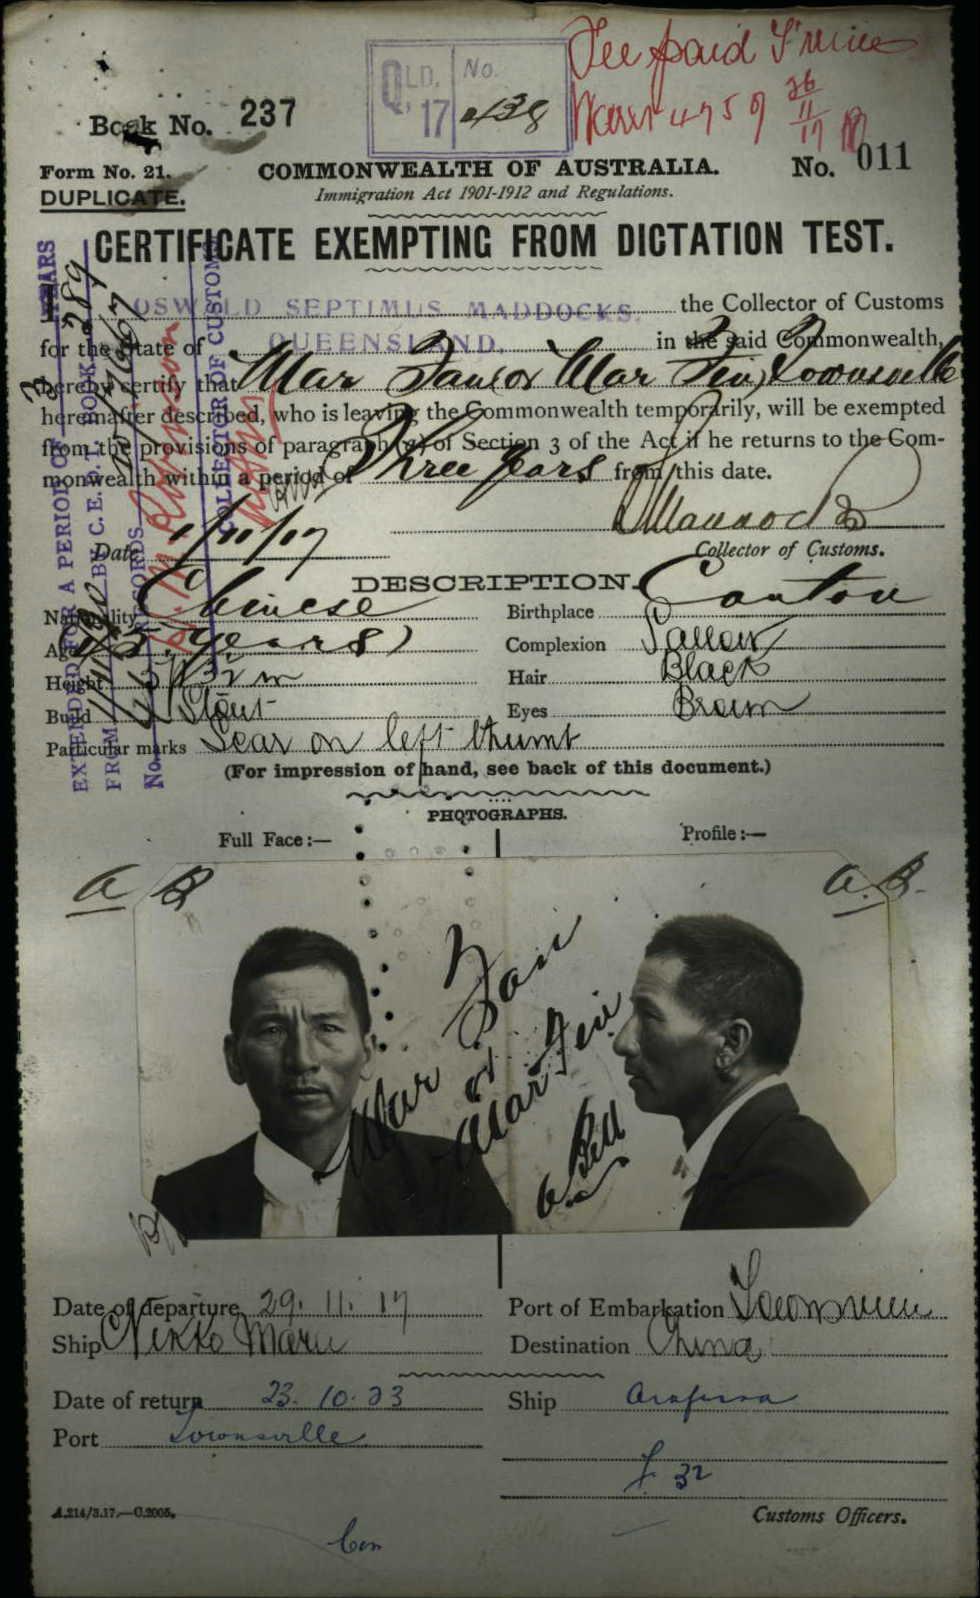 Fee paid
QLD. No.
Q, 17
Book No. 237
26/11/17
Form No. 21. COMMONWEALTH OF AUSTRALIA. No. 011
DUPLICATE. Immigration Act 1901-1912 and Regulations.
CERTIFICATE EXEMPTING FROM DICTATION TEST.
OSWALD SEPTIMUS MADDOCKS, the Collector of Customs
for the State of QUEENSLAND, in the said Commonwealth,
hereby certify that Mar Fan or Mar Fin, Townsville
hereinafter described, who is leaving the Commonwealth temporarily, will be exempted
from the provisions of paragraph (a) of Section 3 of the Act if he returns to the Com-
monwealth within a period of Three years from this date.
Maddocks
Date Collector of Customs.
EXTENDED FOR A PERIOD OF 3 YEARS
FROM BY C.E.D.T. BOOK 289
No. RECORDS
COLLECTOR OF CUSTOMS
DESCRIPTION.
Nationality Chinese Birthplace Canton
Age 45 years Complexion Sallow
Height Hair Black
Build Stout Eyes Brown
Particular marks Scar on left thumb
(For impression of hand, see back of this document.)
PHOTOGRAPHS.
Full Face:— Profile:—
A B A.B.
Mar Fan
or
Mar Fin
A Bell
Date of departure 29. 11. 17 Port of Embarkation Townsville
Ship Nikko Maru Destination China
Date of return 23. 10. 23 Ship Arafura
Port Townsville
F 32
A.214/3.17.—C.2005. Customs Officers.